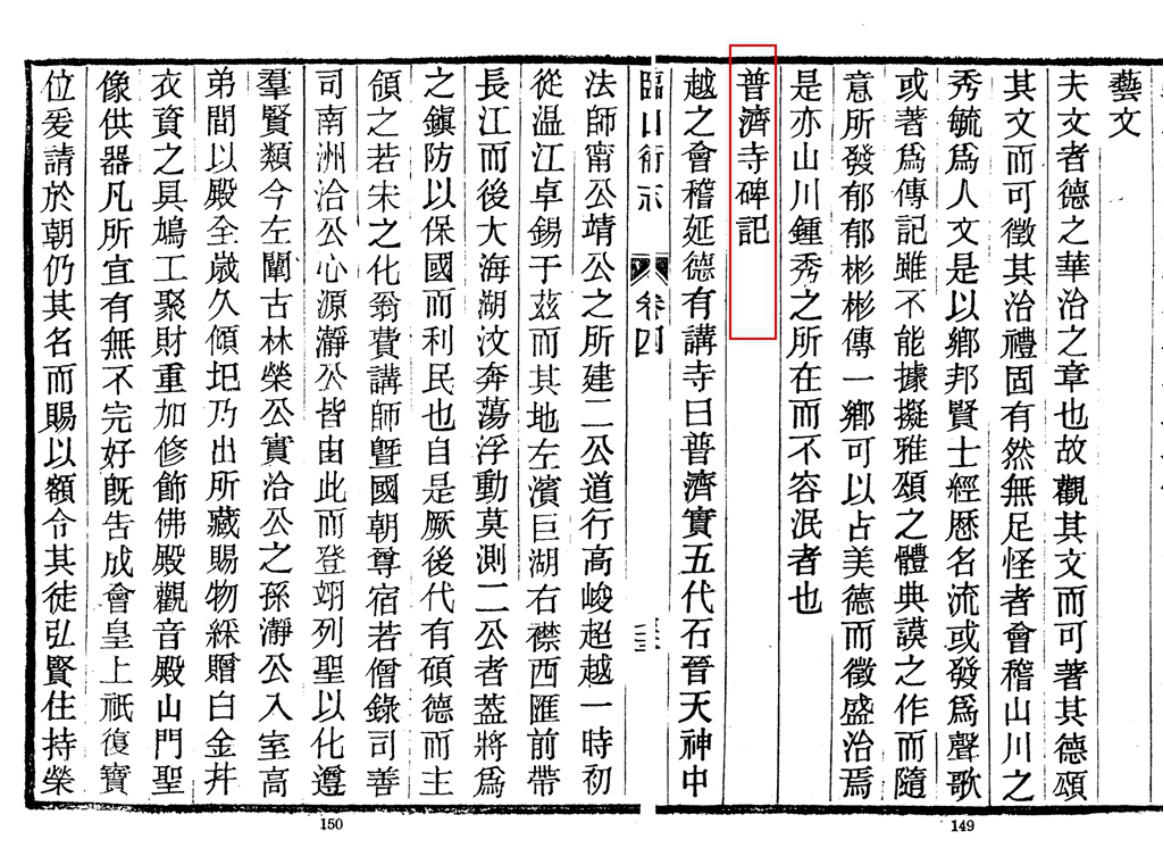 藝文
夫文者德之華治之章也故觀其文而可著其德頌
其文而可徵其治禮固有然無足怪者會稽山川之
秀毓爲人文是以鄉邦賢士經歷名流或發爲聲歌
或著爲傳記雖不能據擬雅頌之體典謨之作而隨
意所發郁郁彬彬傳一鄉可以占美德而徵盛治焉
是亦山川鍾秀之所在而不容泯者也
普濟寺碑記
越之會稽延德有講寺曰普濟實五代石晉天神中
臨山衞志 卷四
法師甯公靖公之所建二公道行高峻超越一時初
從温江卓錫于茲而其地左濱巨湖右襟西匯前帶
長江而後大海湖汶奔蕩浮動莫測二公者蓋將爲
之鎭防以保國而利民也自是厥後代有碩德而主
領之若宋之化翁費講師曁國朝尊宿若僧錄司善
司南洲洽公心源瀞公皆由此而登翊列聖以化遵
羣賢類今左闡古林榮公實洽公之孫瀞公入室高
弟間以殿全歲久傾圯乃出所藏賜物綵贈白金幷
衣資之具鳩工聚財重加修飾佛殿觀音殿山門聖
像供器凡所宜有無不完好旣告成會皇上祇復寶
位爰請於朝仍其名而賜以額令其徒弘賢住持榮
150
149